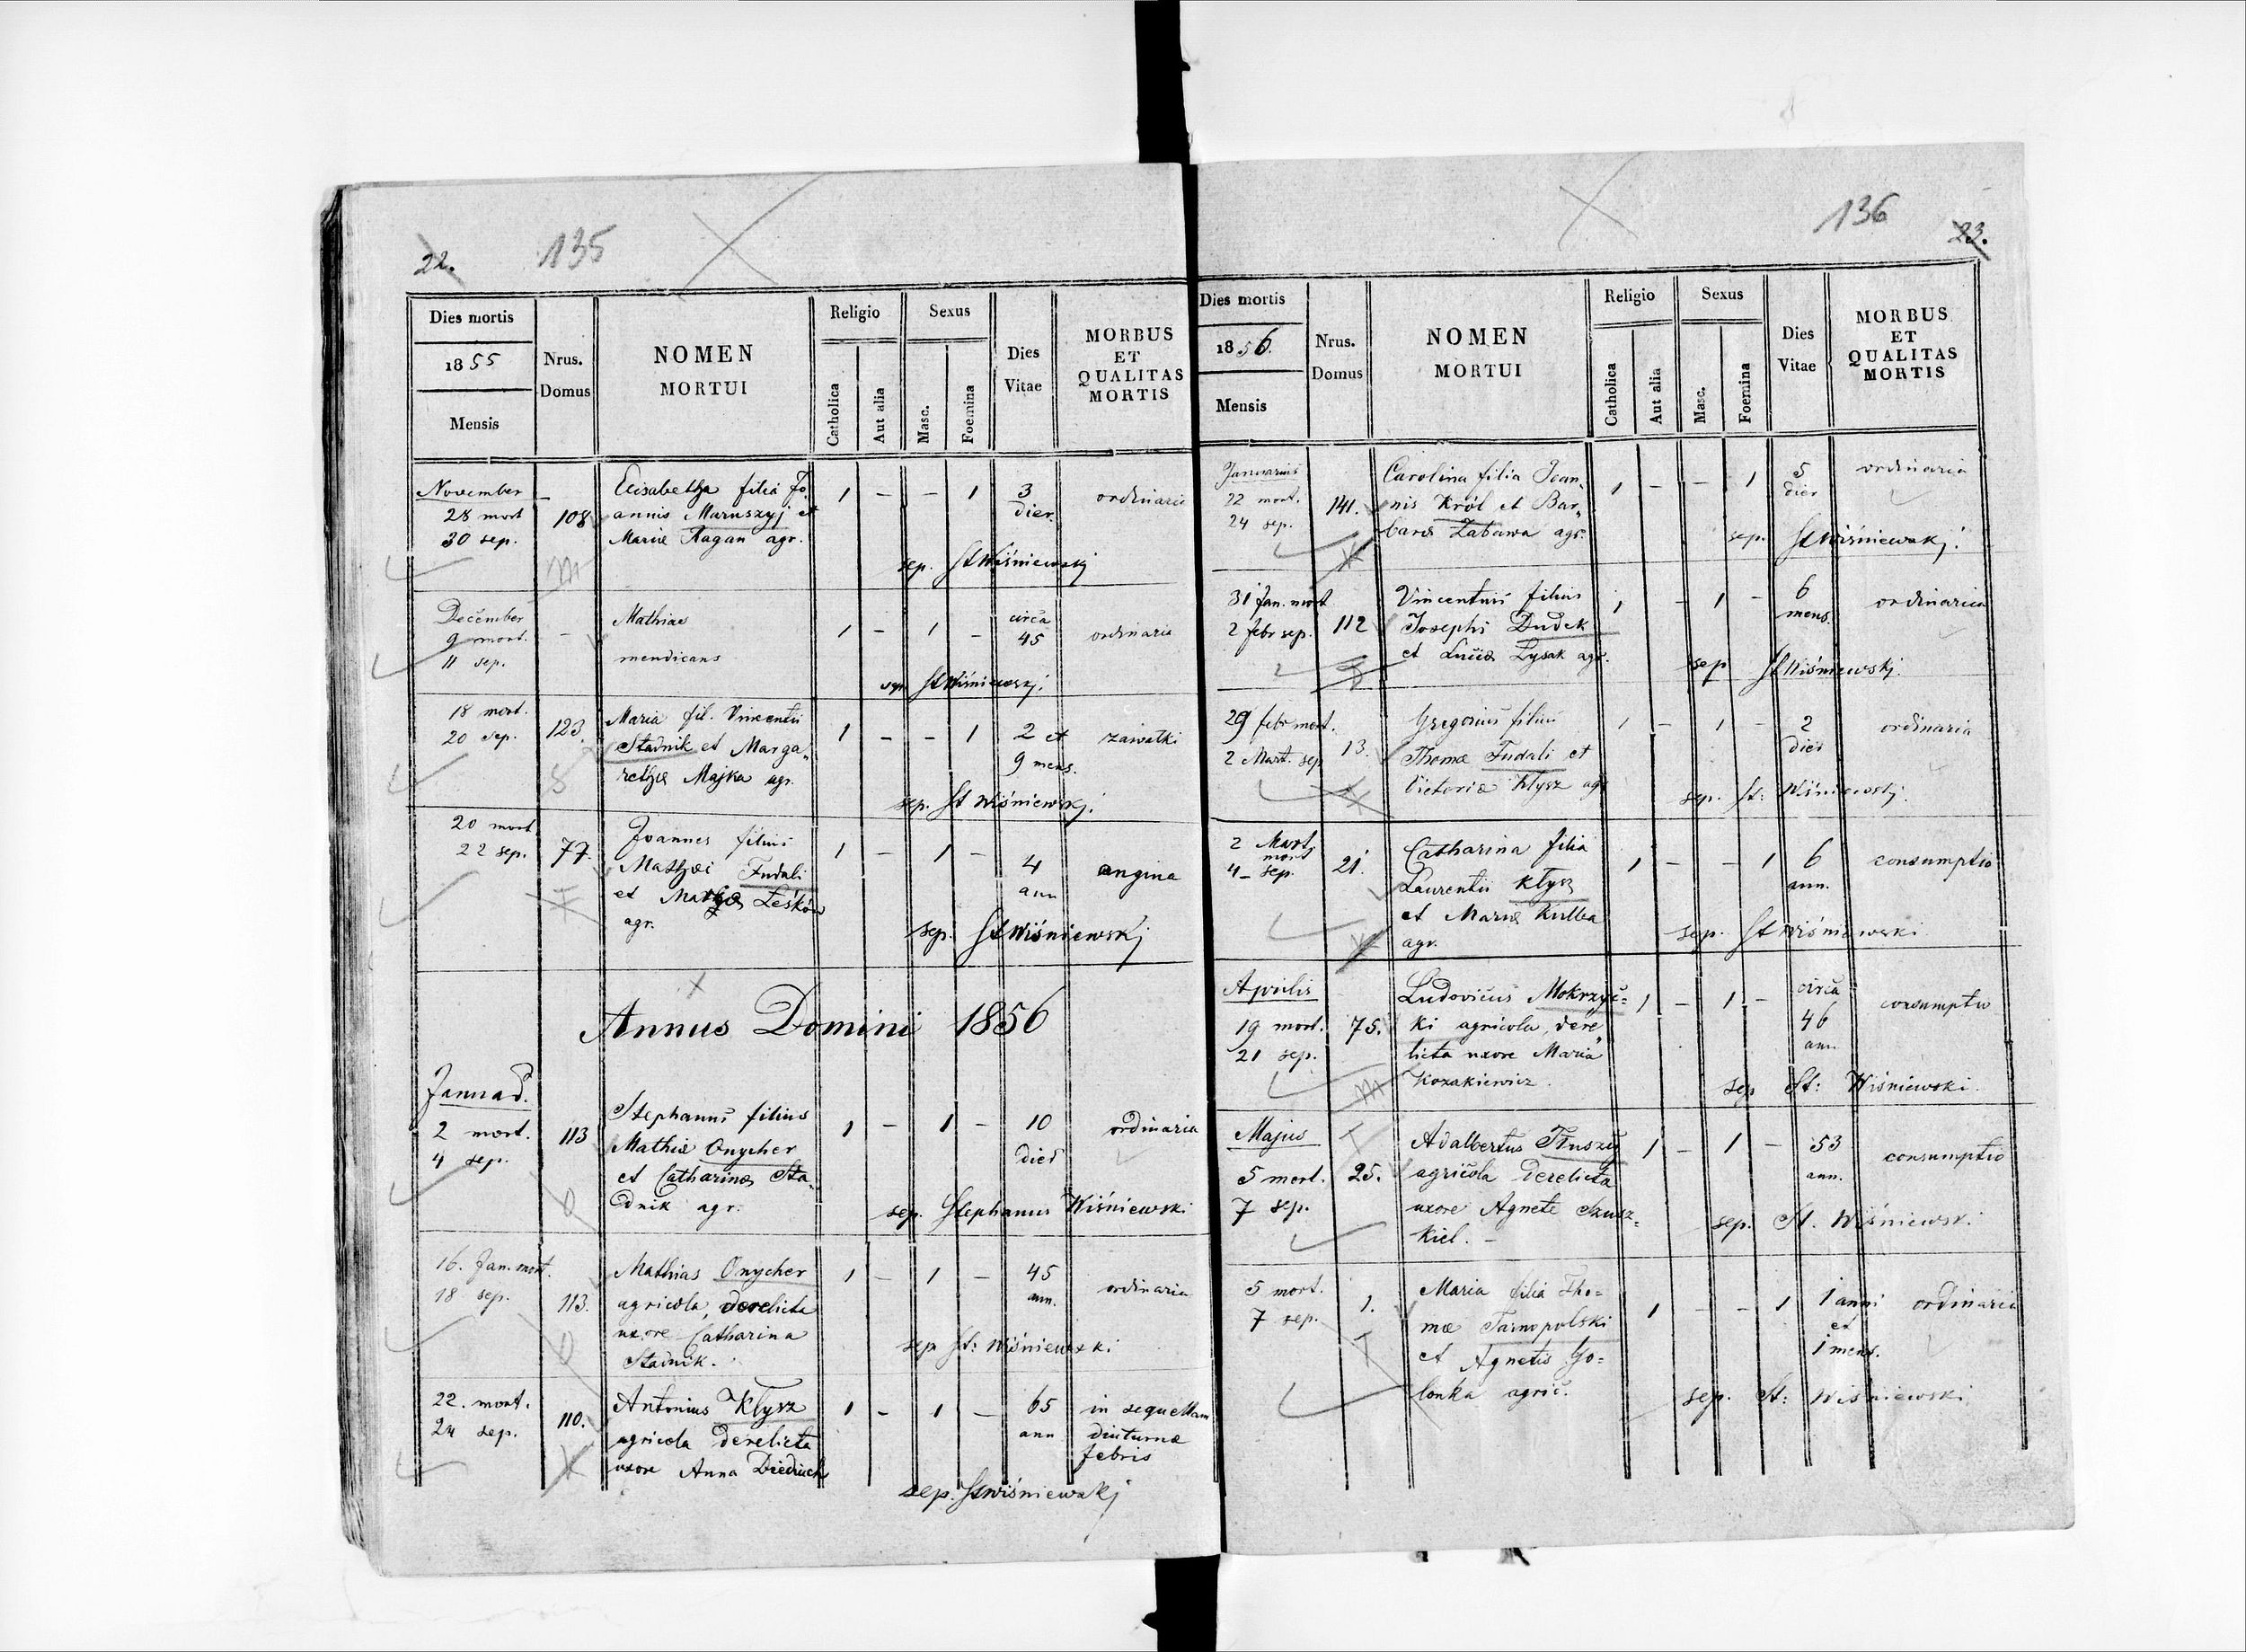 22.
135
Dies mortis
1855
Mensis
Nrus.
Domus
NOMEN
MORTUI
Religio
Catholica
Aut alia
Sexus
Masc.
Foemina
Dies
Vitae
MORBUS
ET
QUALITAS
MORTIS
November
28 mort
30 sep.
108
Elisabetha filia Jo„
annis Maruszyj et
Mariæ Hagan agr.
1 - - 1
3
dier.
ordinaria
sep. St Wiśniewskj
December
9 mort.
11 sep.
-
Mathias
mendicans
1 - 1 -
circa
45
ordinaria
sep St Wiśniewskj.
18 mort.
20 sep.
123.
Maria fil. Vincentii
Stadnik et Marga„
rethæ Majka agr.
1 - - 1
2 et
9 mens.
zawałki
sep. St Wiśniewskj.
20 mort.
22 sep.
77.
Joannes filius
Mathæi Fudali
et Leśków
agr.
1 - 1 -
4
ann
angina
sep. St Wiśniewskj
Annus Domini 1856
2 mort.
4 sep.
113
Stephanus filius
Mathiæ Onycher
et Catharinæ Sta„
dnik agr.
1 - 1 -
10
dies
ordinaria
sep. Stephanus Wiśniewski
16. Jan. mort.
18 sep.
113.
Mathias Onycher
agricola, derelicta
uxore Catharina
Stadnik.
1 - 1 -
45
ann.
ordinaria
sep St: Wiśniewski
22. mort.
24 sep.
110.
Antonius Kłysz
agricola derelicta
uxore Anna Diedriuch
1 - 1 -
65
ann
in sequellam
diuturnæ
febris
sep. St Wiśniewskj
136
23.
Dies mortis
1856.
Mensis
Nrus.
Domus
NOMEN
MORTUI
Religio
Catholica
Aut alia
Sexus
Masc.
Foemina
Dies
Vitae
MORBUS
ET
QUALITAS
MORTIS
Januarius
22 mort.
24 sep.
141.
Carolina filia Joan„
nis Król et Bar„
baræ Zabawa agr.
1 - - 1
5
dier
ordinaria
sep. St Wiśniewskj.
31 Jan. mort
2 febr sep.
112
Vincentius filius
Josephi Dudek
et Luciæ Lysak agr.
1 - 1 -
6
mens.
ordinaria
sep St Wiśniewskj.
29 febr mort.
2 Mart. sep
13.
Gregorius filius
Thomæ Fudali et
Victoriæ Kłysz agr
1 - 1 -
2
dies
ordinaria
sep. St: Wiśniewskj.
2 Mart.
mort
4 - sep.
21.
Catharina filia
Laurentii Kłysz
et Mariæ Kulba
agr.
1 - - 1
6
ann.
consumptio
sep. St Wiśniewski
Aprilis
19 mort.
21 sep.
75.
Ludovicus Mokrzyc=
ki agricola, dere„
licta uxore Maria
Kozakiewicz.
1 - 1 -
circa
46
ann.
consumptio
sep St: Wiśniewski.
Majus
5 mort.
7 sep.
25.
Adalbertus
agricola derelicta
uxore Agnete Szusz=
kiel. -
1 - 1 -
53
ann.
consumptio
sep. St. Wiśniewski
5 mort.
7 sep.
1.
Maria filia Tho=
mæ Tarnopolski
et Agnetis Go=
lonka agric.
1 - - 1
1 anni
et
1 mens.
ordinaria
sep. St: Wiśniewski